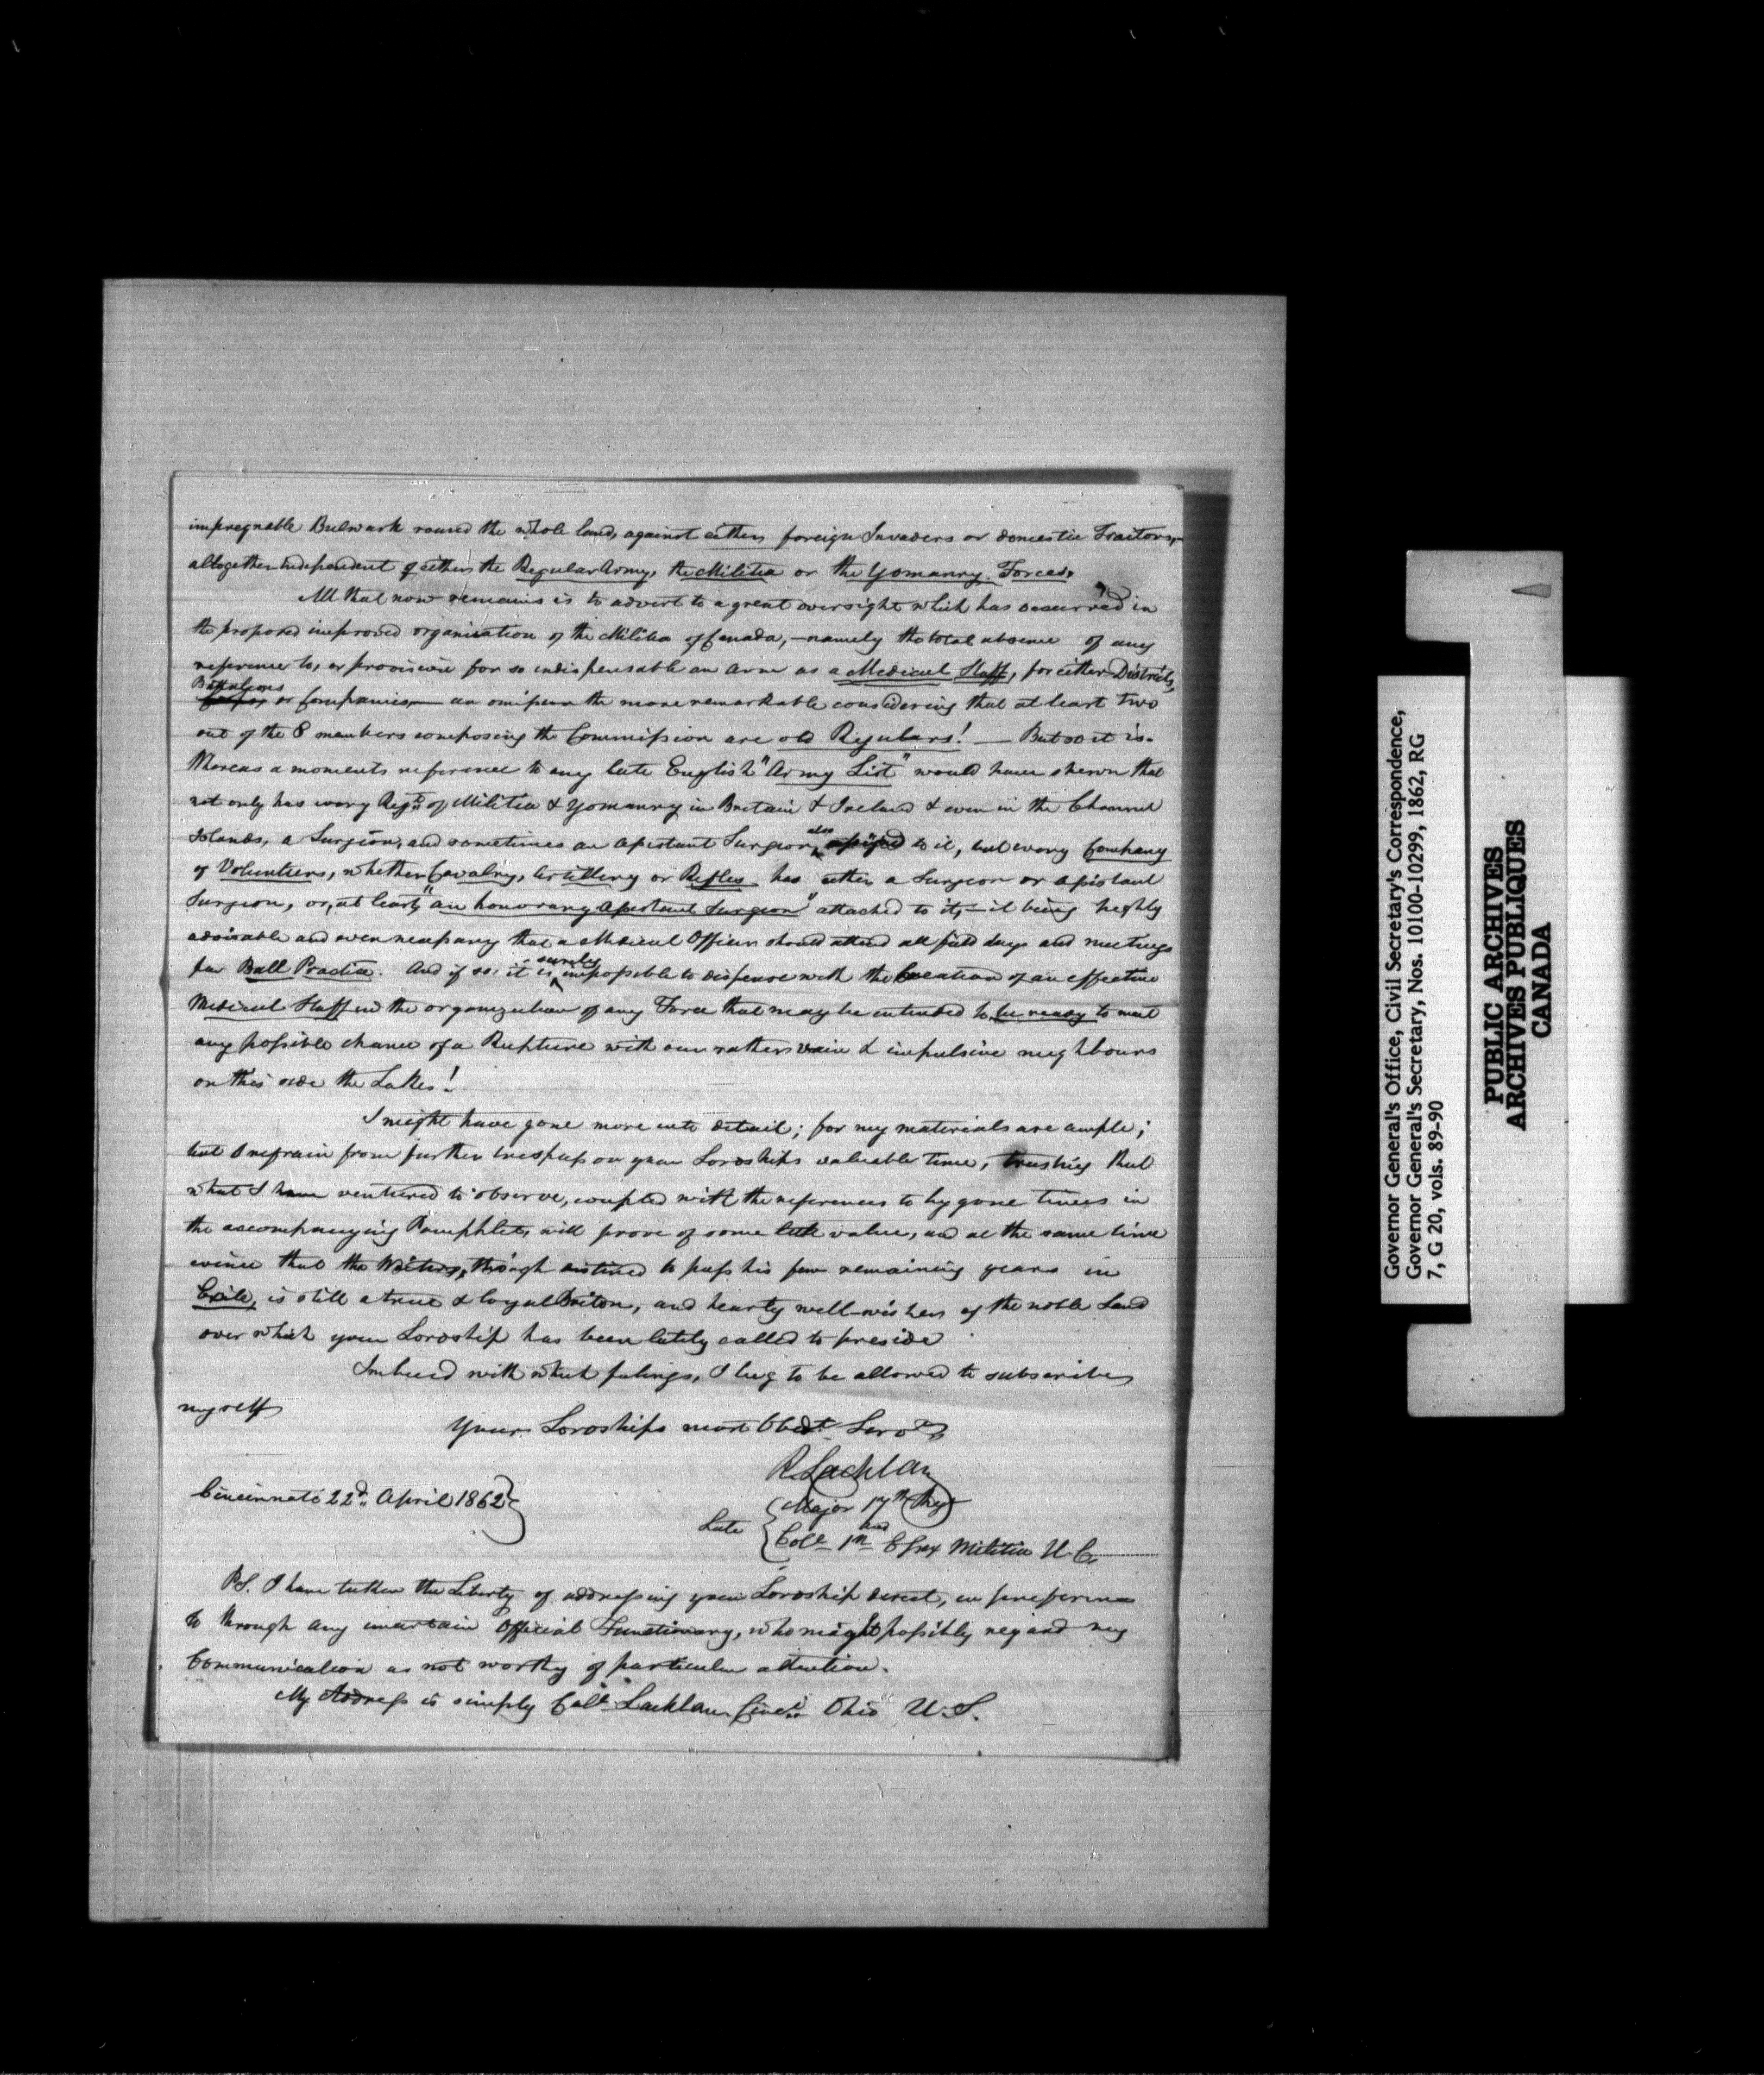 impregnable Bulwark round the whole land, against either foreign Invaders or domestic Traitors,—
altogether independent of either the Regular Army, the Militia or the Yomanry Forces.
All that now remains is to advert to a great oversight which has occurred in
the proposed improved organization of the Militia of Canada,—namely the total absence of any
reference to, or provision for so indispensable an arm as a Medical Staff, for either Districts,
Battalions
or Companies,— an omission the more remarkable considering that at least two
out of the 8 members composing the Commission are old Regulars! — But so it is.
Whereas a moments reference to any late English "Army List" would have shewn that
not only has every Regt. of Militia & Yomanry in Britain & Ireland & even in the Channel
Islands, a Surgeon, and sometimes an Assistant Surgeon, also to it, but every Company
of Volunteers, whether Cavalry, Artillery or Rifles has either a Surgeon or Assistant
Surgeon, or, at least, "an honorary Assistant Surgeon" attached to it,—it being highly
advisable and even necessary that a Medical Officer should attend all field days and meetings
for Ball Practice. And if so, it is surely impossible to dispense with the Creation of an effective
Medical Staff in the organization of any Force that may be intended to be ready to meet
any possible chance of a Rupture with our rather vain & impulsive neighbours
on this side the Lakes!
I might have gone more into detail; for my materials are ample;
but I refrain from further trespass on your Lordships valuable time, trusting that
what I have ventured to observe, coupled with the references to by gone times in
the accompanying Pamphlets, will prove of some little value, and at the same time
evince that the Writer, though destined to pass his few remaining years in
Exile, is still a true & loyal Briton, and hearty well-wisher of the noble Land
over which your Lordship has been lately called to preside.
Imbued with which feelings, I beg to be allowed to subscribe
myself
Your Lordships most Obedt. Servt.
R. Lachlan
Cincinnati 22d. April 1862
Late
Major 17th Regt
Coll. 1st and Essex Militia U.C.
P.S. I have taken the Liberty of addressing your Lordship direct, in preference
to through any uncertain Official Functionary, who might possibly regard my
Communication as not worthy of particular attention.
My Address is simply Coll. Lachlan Cinci. Ohio U.S.
Governor General's Office, Civil Secretary's Correspondence,
Governor General's Secretary, Nos. 10100-10299, 1862, RG
7, G 20, vols. 89-90
PUBLIC ARCHIVES
ARCHIVES PUBLIQUES
CANADA